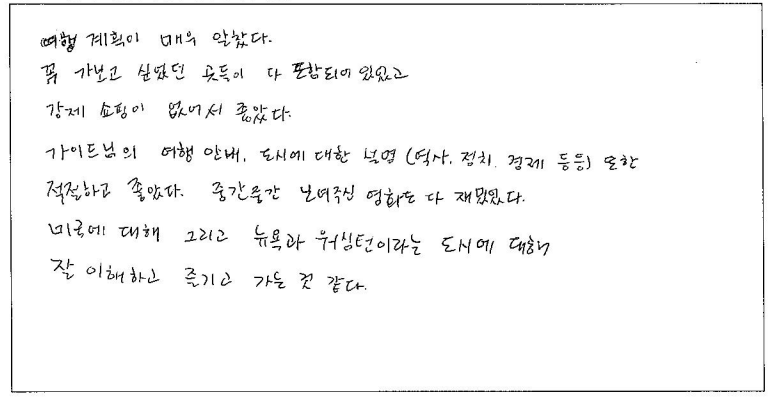 여행 계획이 매우 알찼다.
꼭 가보고 싶었던 곳들이 다 포함되어 있었고
강제 쇼핑이 없어서 좋았다.
가이드님의 여행 안내, 도시에 대한 설명 (역사, 정치, 경제 등등) 또한
적절하고 좋았다. 중간중간 보여주신 영화도 다 재밌었다.
미국에 대해 그리고 뉴욕과 워싱턴이라는 도시에 대해
잘 이해하고 즐기고 가는 것 같다.